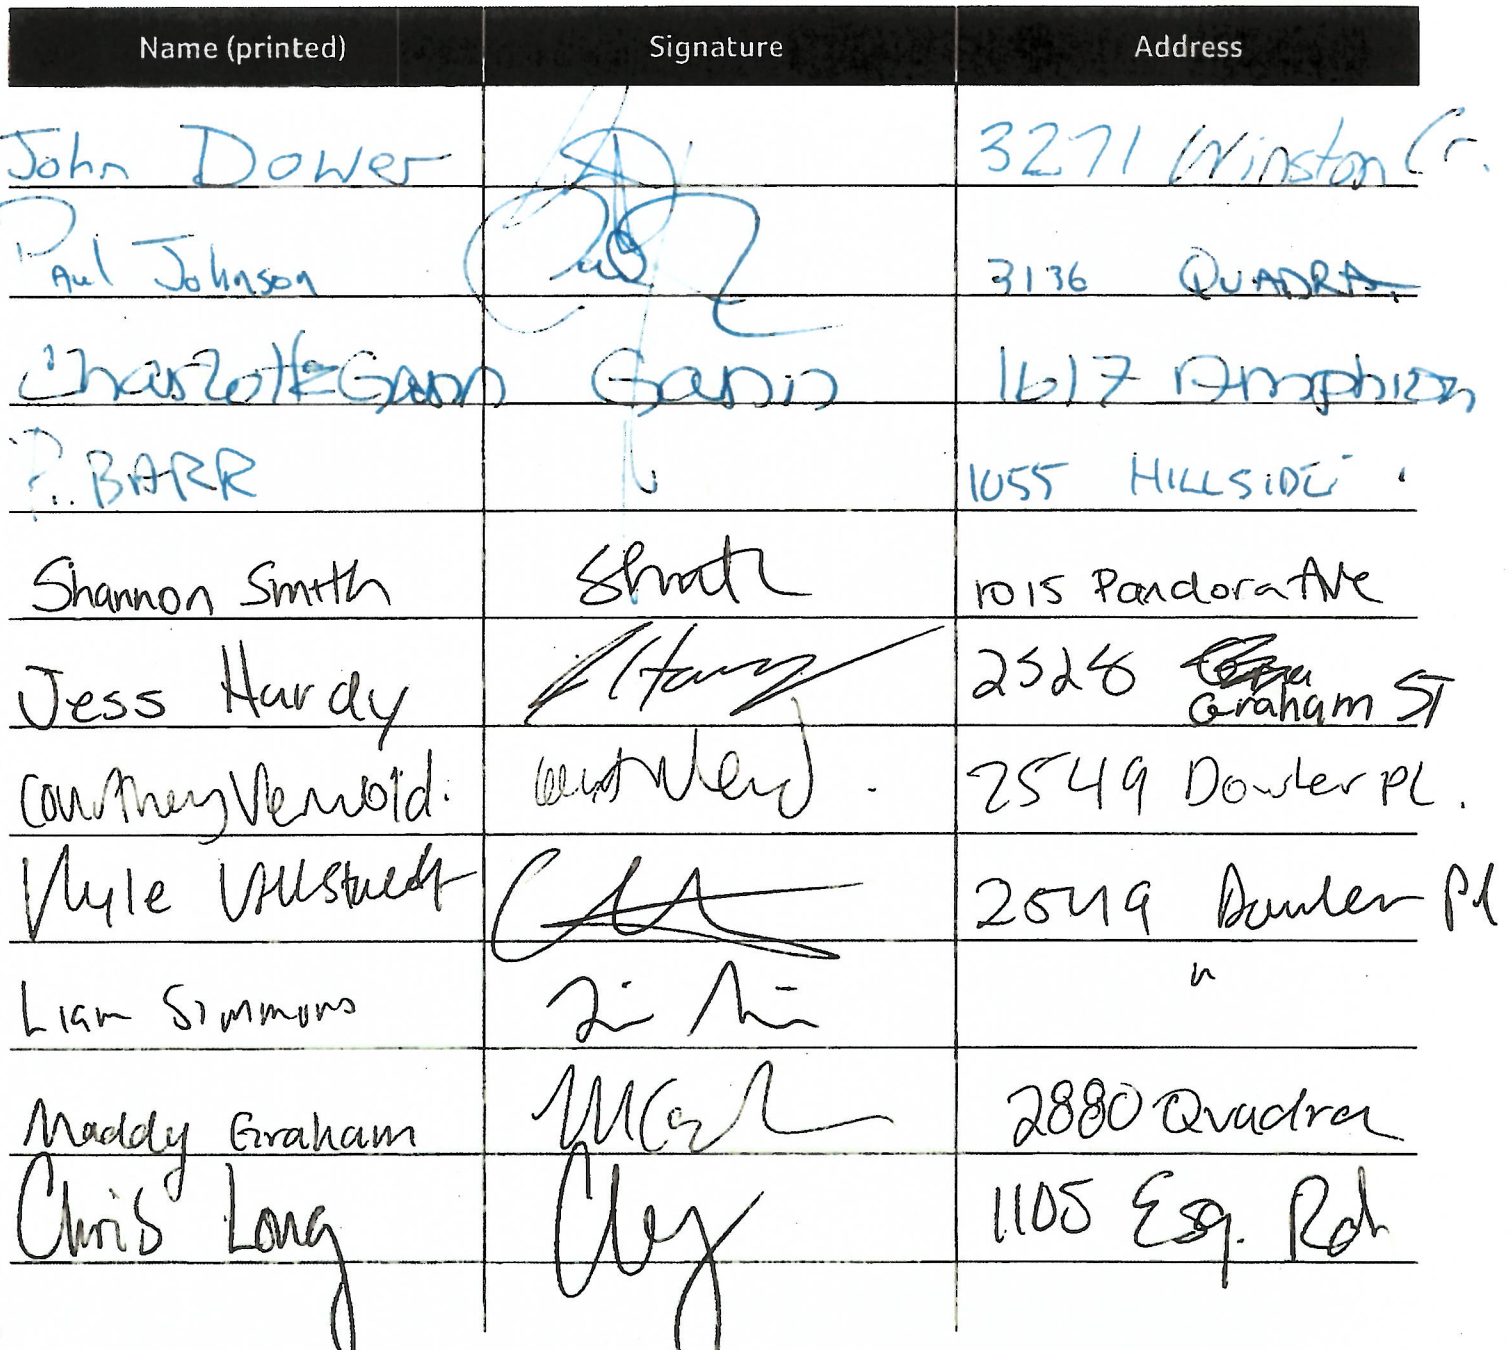 Name (printed) Signature Address
John Dower 3271 Winston Cr.
Paul Johnson 3136 QUADRA
Charlotte Gann Gann 1617 Amphion
P. BARR 1055 HILLSIDE
Shannon Smith 1015 Pandora Ave
Jess Hardy 2528 Graham ST
Courtney 2549 Dowler PL.
Kyle 2549 Dowler Pl
Liam Simmons "
Maddy Graham 2880 Quadra
Chris Long 1105 Esq. Rd